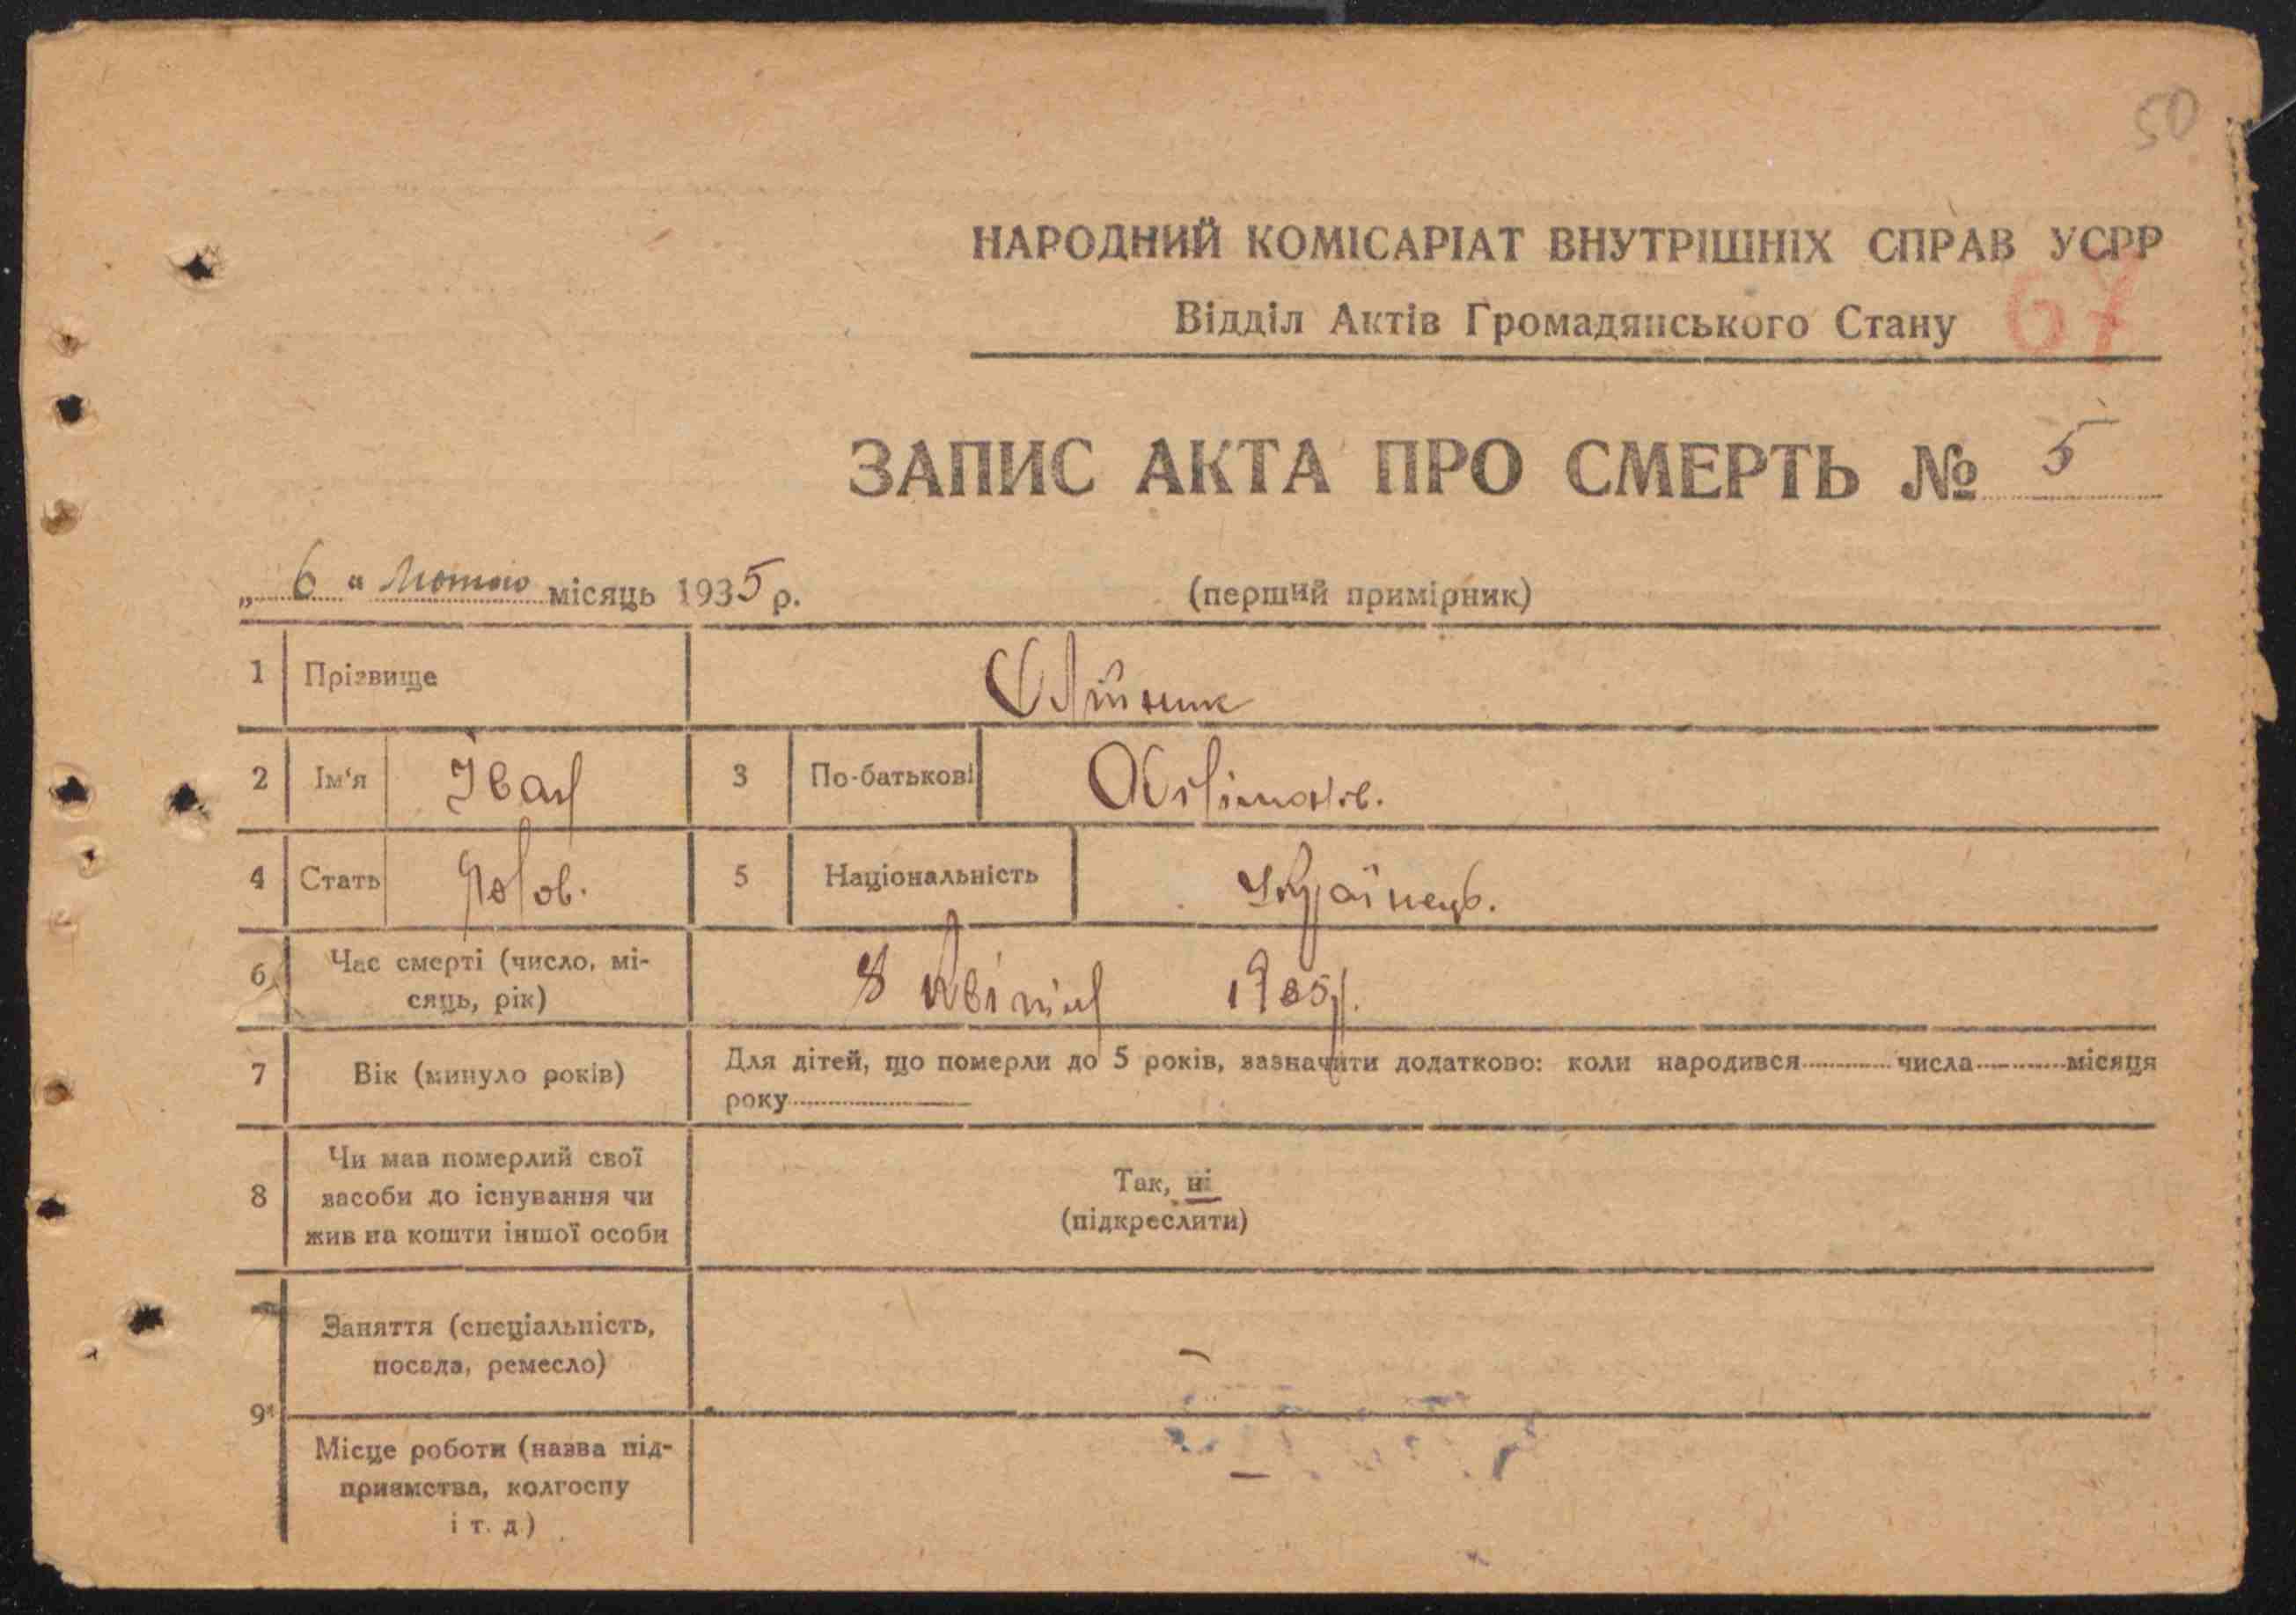 50
НАРОДНИЙ КОМІСАРІАТ ВНУТРІШНІХ СПРАВ УСРР
Відділ Актів Громадянського Стану 67
ЗАПИС АКТА ПРО СМЕРТЬ № 5
„ 6 “ Лютого місяць 1935 р. (перший примірник)
1 Прізвище
2 Ім'я Іван 3 По-батькові
4 Стать Чолов. 5 Національність Українець.
6 Час смерті (число, мі-
сяць, рік) 8 1935р.
7 Вік (минуло років) Для дітей, що померли до 5 років, зазначити додатково: коли народився числа місяця
року
8 Чи мав померлий свої
засоби до існування чи
жив на кошти іншої особи
Так, ні
(підкреслити)
Заняття (спеціальність,
посада, ремесло) —
9
Місце роботи (назва під-
приємства, колгоспу
і т. д.) —